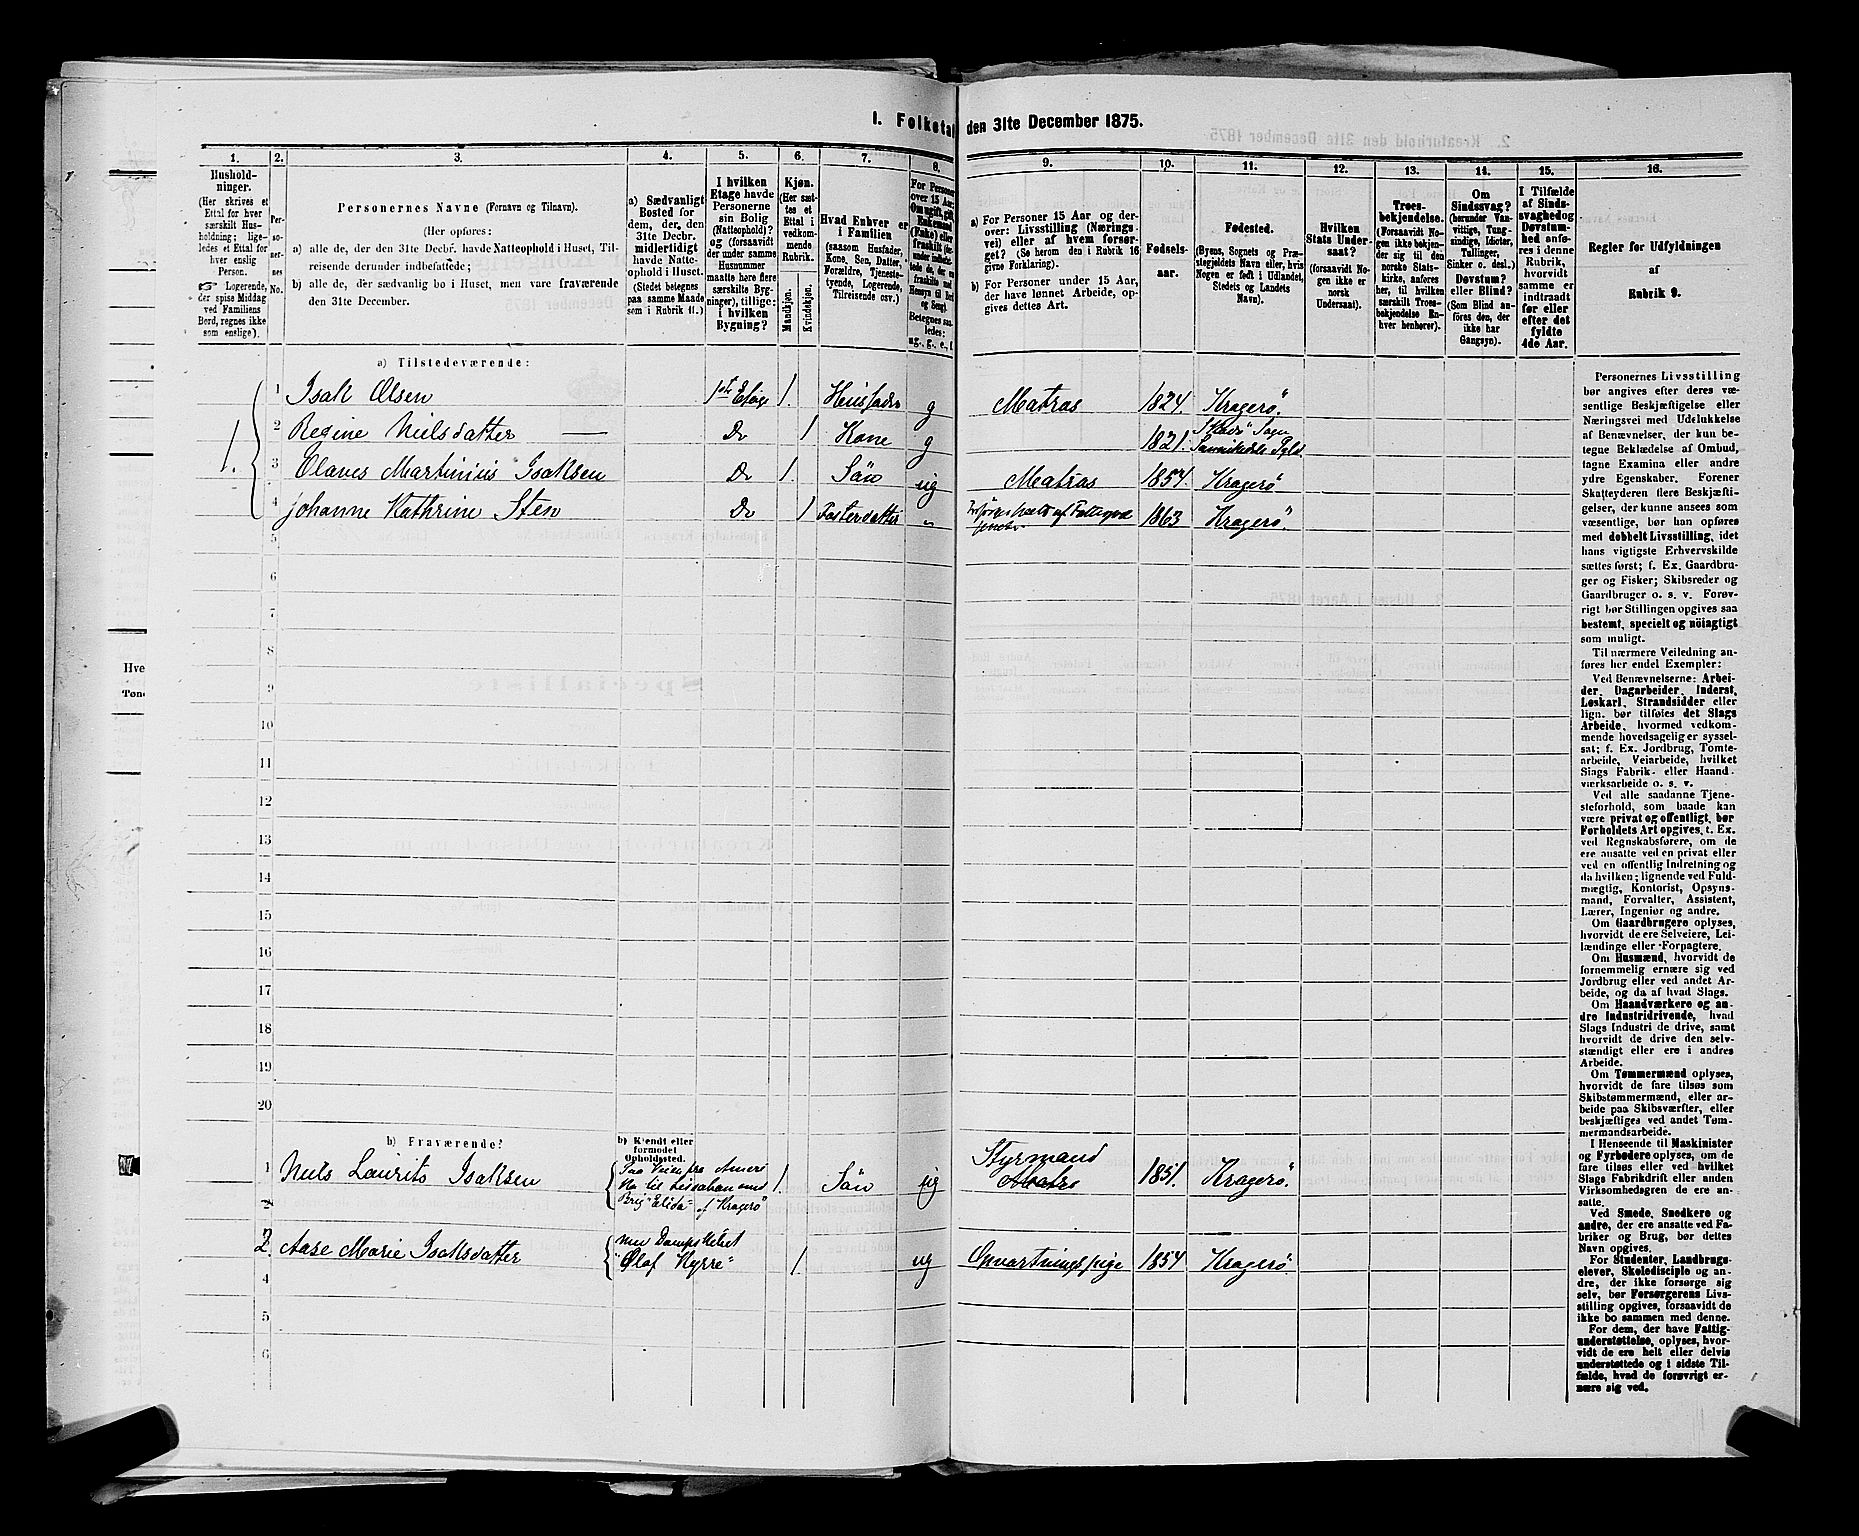 1. Folketal den 31te December 1875.
1. 2. 3. 4. 5. 6. 7. 8. 9. 10. 11. 12. 13. 14. 15. 16.
Hushold-
ninger.
(Her skrives et
Ettal for hver
særskilt Hus-
holdning; lige-
ledes et Ettal for
hver enslig
Person.
☞ Logerende,
der spise Middag
ved Familiens
Bord, regnes ikke
som enslige).
Per-
so-
ner-
nes
No.
Personernes Navne (Fornavn og Tilnavn).
(Her opføres:
a) alle de, der den 31te Decbr. havde Natteophold i Huset, Til-
reisende derunder indbefattede;
b) alle de, der sædvanlig bo i Huset, men vare fraværende
den 31te December.
a) Sædvanligt
Bosted for
dem, der, den
31te Decbr.
midlertidigt
havde Natte-
ophold i Huset.
(Stedet betegnes
paa samme Maade
som i Rubrik 11.)
I hvilken
Etage havde
Personerne
sin Bolig
(Natteophold)?
og (forsaavidt
der under samme
Husnummer
maatte høre flere
særskilte Byg-
ninger), tillige:
i hvilken
Bygning?
Kjøn.
(Her sæt-
tes et
Ettal i
vedkom-
mende
Rubrik.
Mandkjøn.
Kvindekjøn.
Hvad Enhver er
i Familien
(saasom Husfader,
Kone, Søn, Datter,
Forældre, Tjeneste-
tyende, Logerende,
Tilreisende osv.)
For Personer
over 15 Aar:
Om ugift, gift,
Enkemand
(Enke) eller
fraskilt
Betegnes saa-
ledes:
ug., g., e., f.
a) For Personer 15 Aar og der-
over: Livsstilling (Nærings-
vei) eller af hvem forsør-
get? (Se herom den i Rubrik 16
givne Forklaring).
b) For Personer under 15 Aar,
der have lønnet Arbeide, op-
gives dettes Art.
Fødsels-
aar.
Fødested.
(Byens, Sognets og Præ-
stegjeldets Navn eller, hvis
Nogen er født i Udlandet,
Stedets og Landets
Navn).
Hvilken
Stats Under-
saat?
(forsaavidt No-
gen ikke er
norsk
Undersaat).
Troes-
bekjendelse.
(Forsaavidt No-
gen ikke bekjen-
der sig til den
norske Stats-
kirke, anføres
her, til hvilken
særskilt Troes-
bekjendelse En-
hver henhører).
Om
Sindssvag?
(herunder Van-
vittige, Tung-
sindige, Idioter,
Tullinger,
Sinker o. desl.)
Døvstum?
eller Blind?
(Som Blind an-
føres den, der
ikke har
Gangsyn).
I Tilfælde
af Sinds-
svaghed og
Døvstum-
hed anfø-
res i denne
Rubrik,
hvorvidt
samme er
indtraadt
før eller
efter det
fyldte
4de Aar.
Regler for Udfyldningen
af
Rubrik 9.
a) Tilstedeværende:
1.
1 Isak Olsen 1ste Etage 1. Husfader g Matros 1824. Kragerø.
2 Regine Nielsdatter Do 1 Kone g 1821. Skaadø Sogn Sannikedals Pgld.
3 Olaves Martinius Isaksen Do 1. Søn ug Matros 1854. Kragerø
4 Johanne Kathrine Sten Do 1 Fosterdatter „ 1863 Kragerø.
5
6
7
8
9
10
11
12
13
14
15
16
17
18
19
20
b) Fraværende?
b) Kjendt eller
formodet
Opholdssted.
1 Niels Laurits Isaksen Paa Veien fra Ameri
ka til Lissabon med
Brig "Elida" af Kragerø 1. Søn ug Styrmand
Matros 1851. Kragerø.
2
2. Aase Marie Isaksdatter med Dampskibet
"Olaf Kyrre" 1. ug Opvartningspige 1854 Kragerø
4
5
6
Personernes Livsstilling
bør angives efter deres væ-
sentlige Beskjæftigelse eller
Næringsvei med Udelukkelse
af Benævnelser, der kun be-
tegne Beklædelse af Ombud,
tagne Examina eller andre
ydre Egenskaber. Forener
Skatteyderen flere Beskjæfti-
gelser, der kunne ansees som
væsentlige, bør han opføres
med dobbelt Livsstilling, idet
hans vigtigste Erhvervskilde
sættes først; f. Ex. Gaardbru-
ger og Fisker; Skibsreder og
Gaardbruger o. s. v. Forøv-
rigt bør Stillingen opgives saa
bestemt, specielt og nöiagtigt
som muligt.
Til nærmere Veiledning an-
føres her endel Exempler:
Ved Benævnelserne: Arbei-
der, Dagarbeider, Inderst,
Løskarl, Strandsidder eller
lign. bør tilføies det Slags
Arbeide, hvormed vedkom-
mende hovedsagelig er syssel-
sat; f. Ex. Jordbrug, Tomte-
arbeide, Veiarbeide, hvilket
Slags Fabrik- eller Haand-
værksarbeide o. s. v.
Ved alle saadanne Tjene-
steforhold, som baade kan
være privat og offentligt, bør
Forholdets Art opgives, f. Ex.
ved Regnskabsførere, om de
ere ansatte ved en privat eller
ved en offentlig Indretning og
da hvilken; lignende ved Fuld-
mægtig, Kontorist, Opsyns-
mand, Forvalter, Assistent,
Lærer, Ingeniør og andre.
Om Gaardbrugere oplyses,
hvorvidt de ere Selveiere, Lei-
lændinge eller Forpagtere.
Om Husmænd, hvorvidt de
fornemmelig ernære sig ved
Jordbrug eller ved andet Ar-
beide, og da af hvad Slags.
Om Haandværkere og an-
dre Industridrivende, hvad
Slags Industri de drive, samt
hvorvidt de drive den selv-
stændigt eller ere i andres
Arbeide.
Om Tømmermænd oplyses,
hvorvidt de fare tilsøs som
Skibstømmermænd, eller ar-
beide paa Skibsværfter, eller
beskjæftiges ved andet Tøm-
mermandsarbeide.
I Henseende til Maskinister
og Fyrbødere oplyses, om de
fare tilsøs eller ved hvilket
Slags Fabrikdrift eller anden
Virksomhedsgren de ere an-
satte.
Ved Smede, Snedkere og
andre, der ere ansatte ved Fa-
briker og Brug, bør dettes
Navn opgives.
For Studenter, Landbrugs-
elever, Skoledisciple og an-
dre, der ikke forsørge sig
selv, bør Forsørgerens Livs-
stilling opgives, forsaavidt de
ikke bo sammen med denne.
For dem, der have Fattig-
understøttelse, oplyses, hvor-
vidt de ere helt eller delvis
understøttede og i sidste Til-
fælde, hvad de forøvrigt er-
nære sig ved.
Hve
Tønd